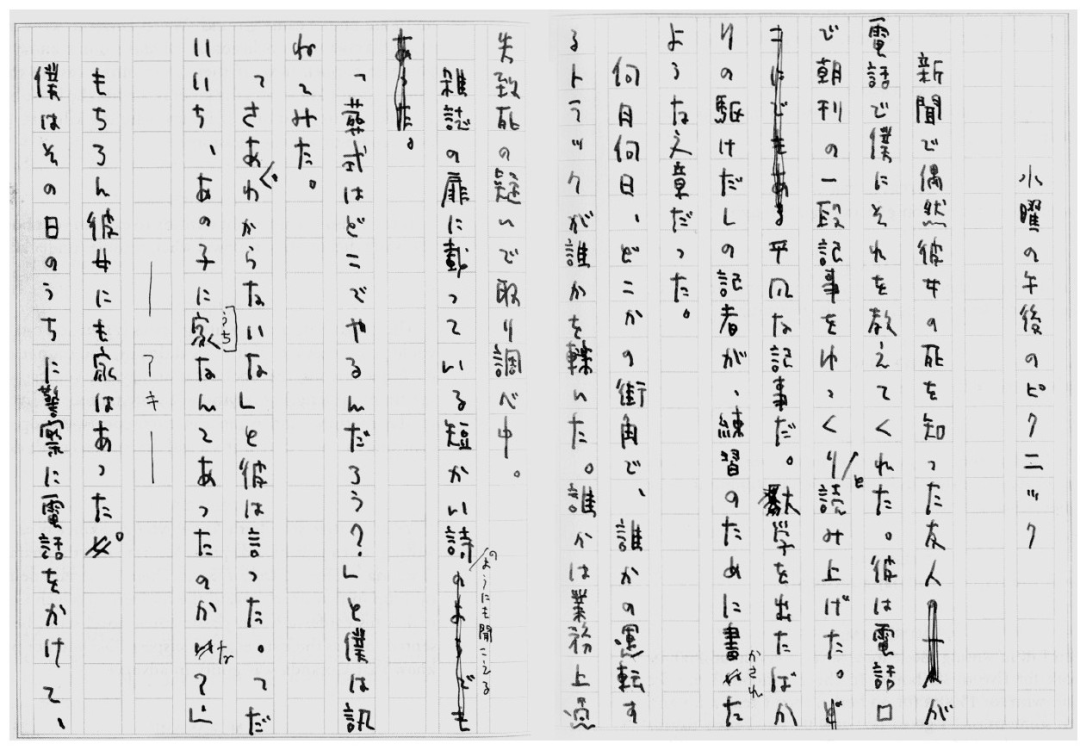 水曜の午後のピクニック
新聞で偶然彼女の死を知った友人が
電話で僕にそれを教えてくれた。彼は電話口
で朝刊の一段記事をゆっくりと読み上げた。ど
こにでもある平凡な記事だ。大学を出たばか
りの駆けだしの記者が、練習のために書かされた
ような文章だった。
何月何日、どこかの街角で、誰かの運転す
るトラックが誰かを轢いた。誰かは業務上過
失致死の疑いで取り調べ中。
雑誌の扉に載っている短かい詩のようにも聞こえる
のようでも
あった。
「葬式はどこでやるんだろう?」と僕は訊
ねてみた。
「さあ、わからないな」と彼は言った。「だ
いいち、あの子に家なんてあったのかな?」
うち
―アキ―
もちろん彼女にも家はあった。
僕はその日のうちに警察に電話をかけて、